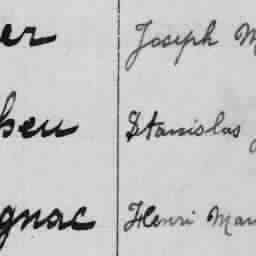 er Joseph M
heu Stanislas
gnac Henri Mau